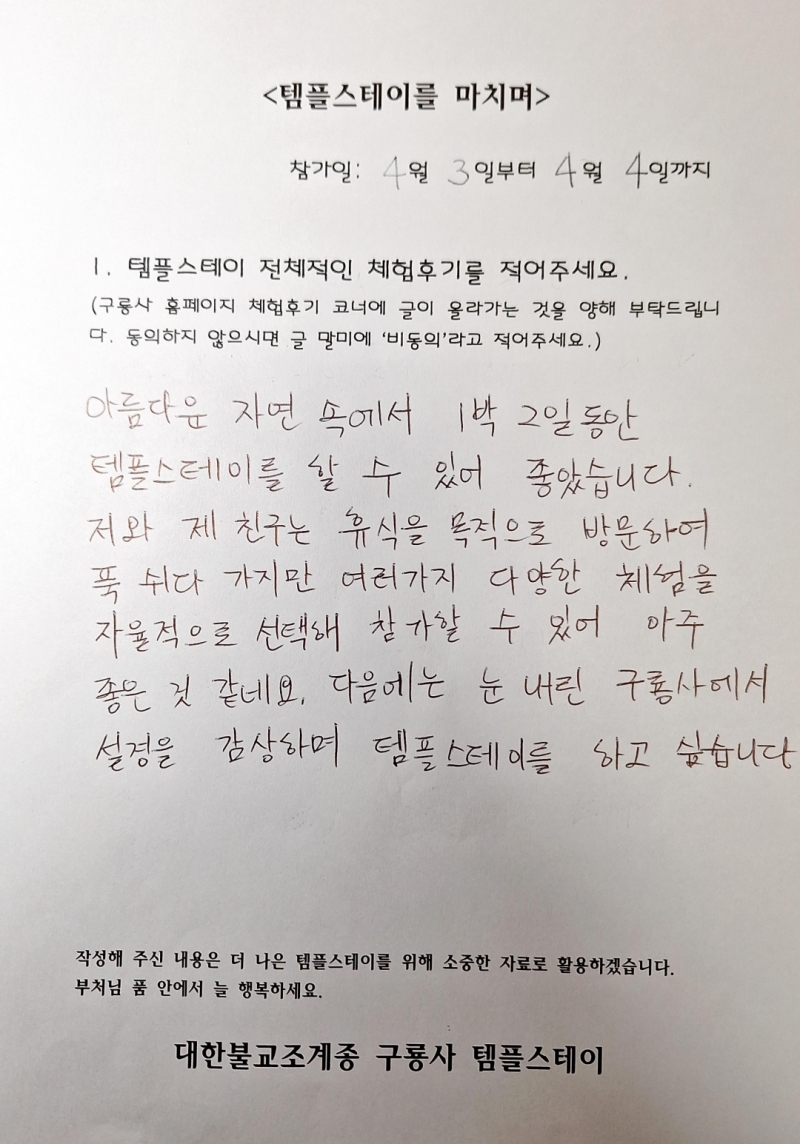 <템플스테이를 마치며>
참가일: 4월 3일부터 4월 4일까지
1. 템플스테이 전체적인 체험후기를 적어주세요.
(구룡사 홈페이지 체험후기 코너에 글이 올라가는 것을 양해 부탁드립니
다. 동의하지 않으시면 글 말미에 '비동의'라고 적어주세요.)
아름다운 자연 속에서 1박 2일 동안
템플스테이를 할 수 있어 좋았습니다.
저와 제 친구는 휴식을 목적으로 방문하여
푹 쉬다 가지만 여러가지 다양한 체험을
자율적으로 선택해 참가할 수 있어 아주
좋은 것 같네요. 다음에는 눈 내린 구룡사에서
설경을 감상하며 템플스테이를 하고 싶습니다
작성해 주신 내용은 더 나은 템플스테이를 위해 소중한 자료로 활용하겠습니다.
부처님 품 안에서 늘 행복하세요.
대한불교조계종 구룡사 템플스테이